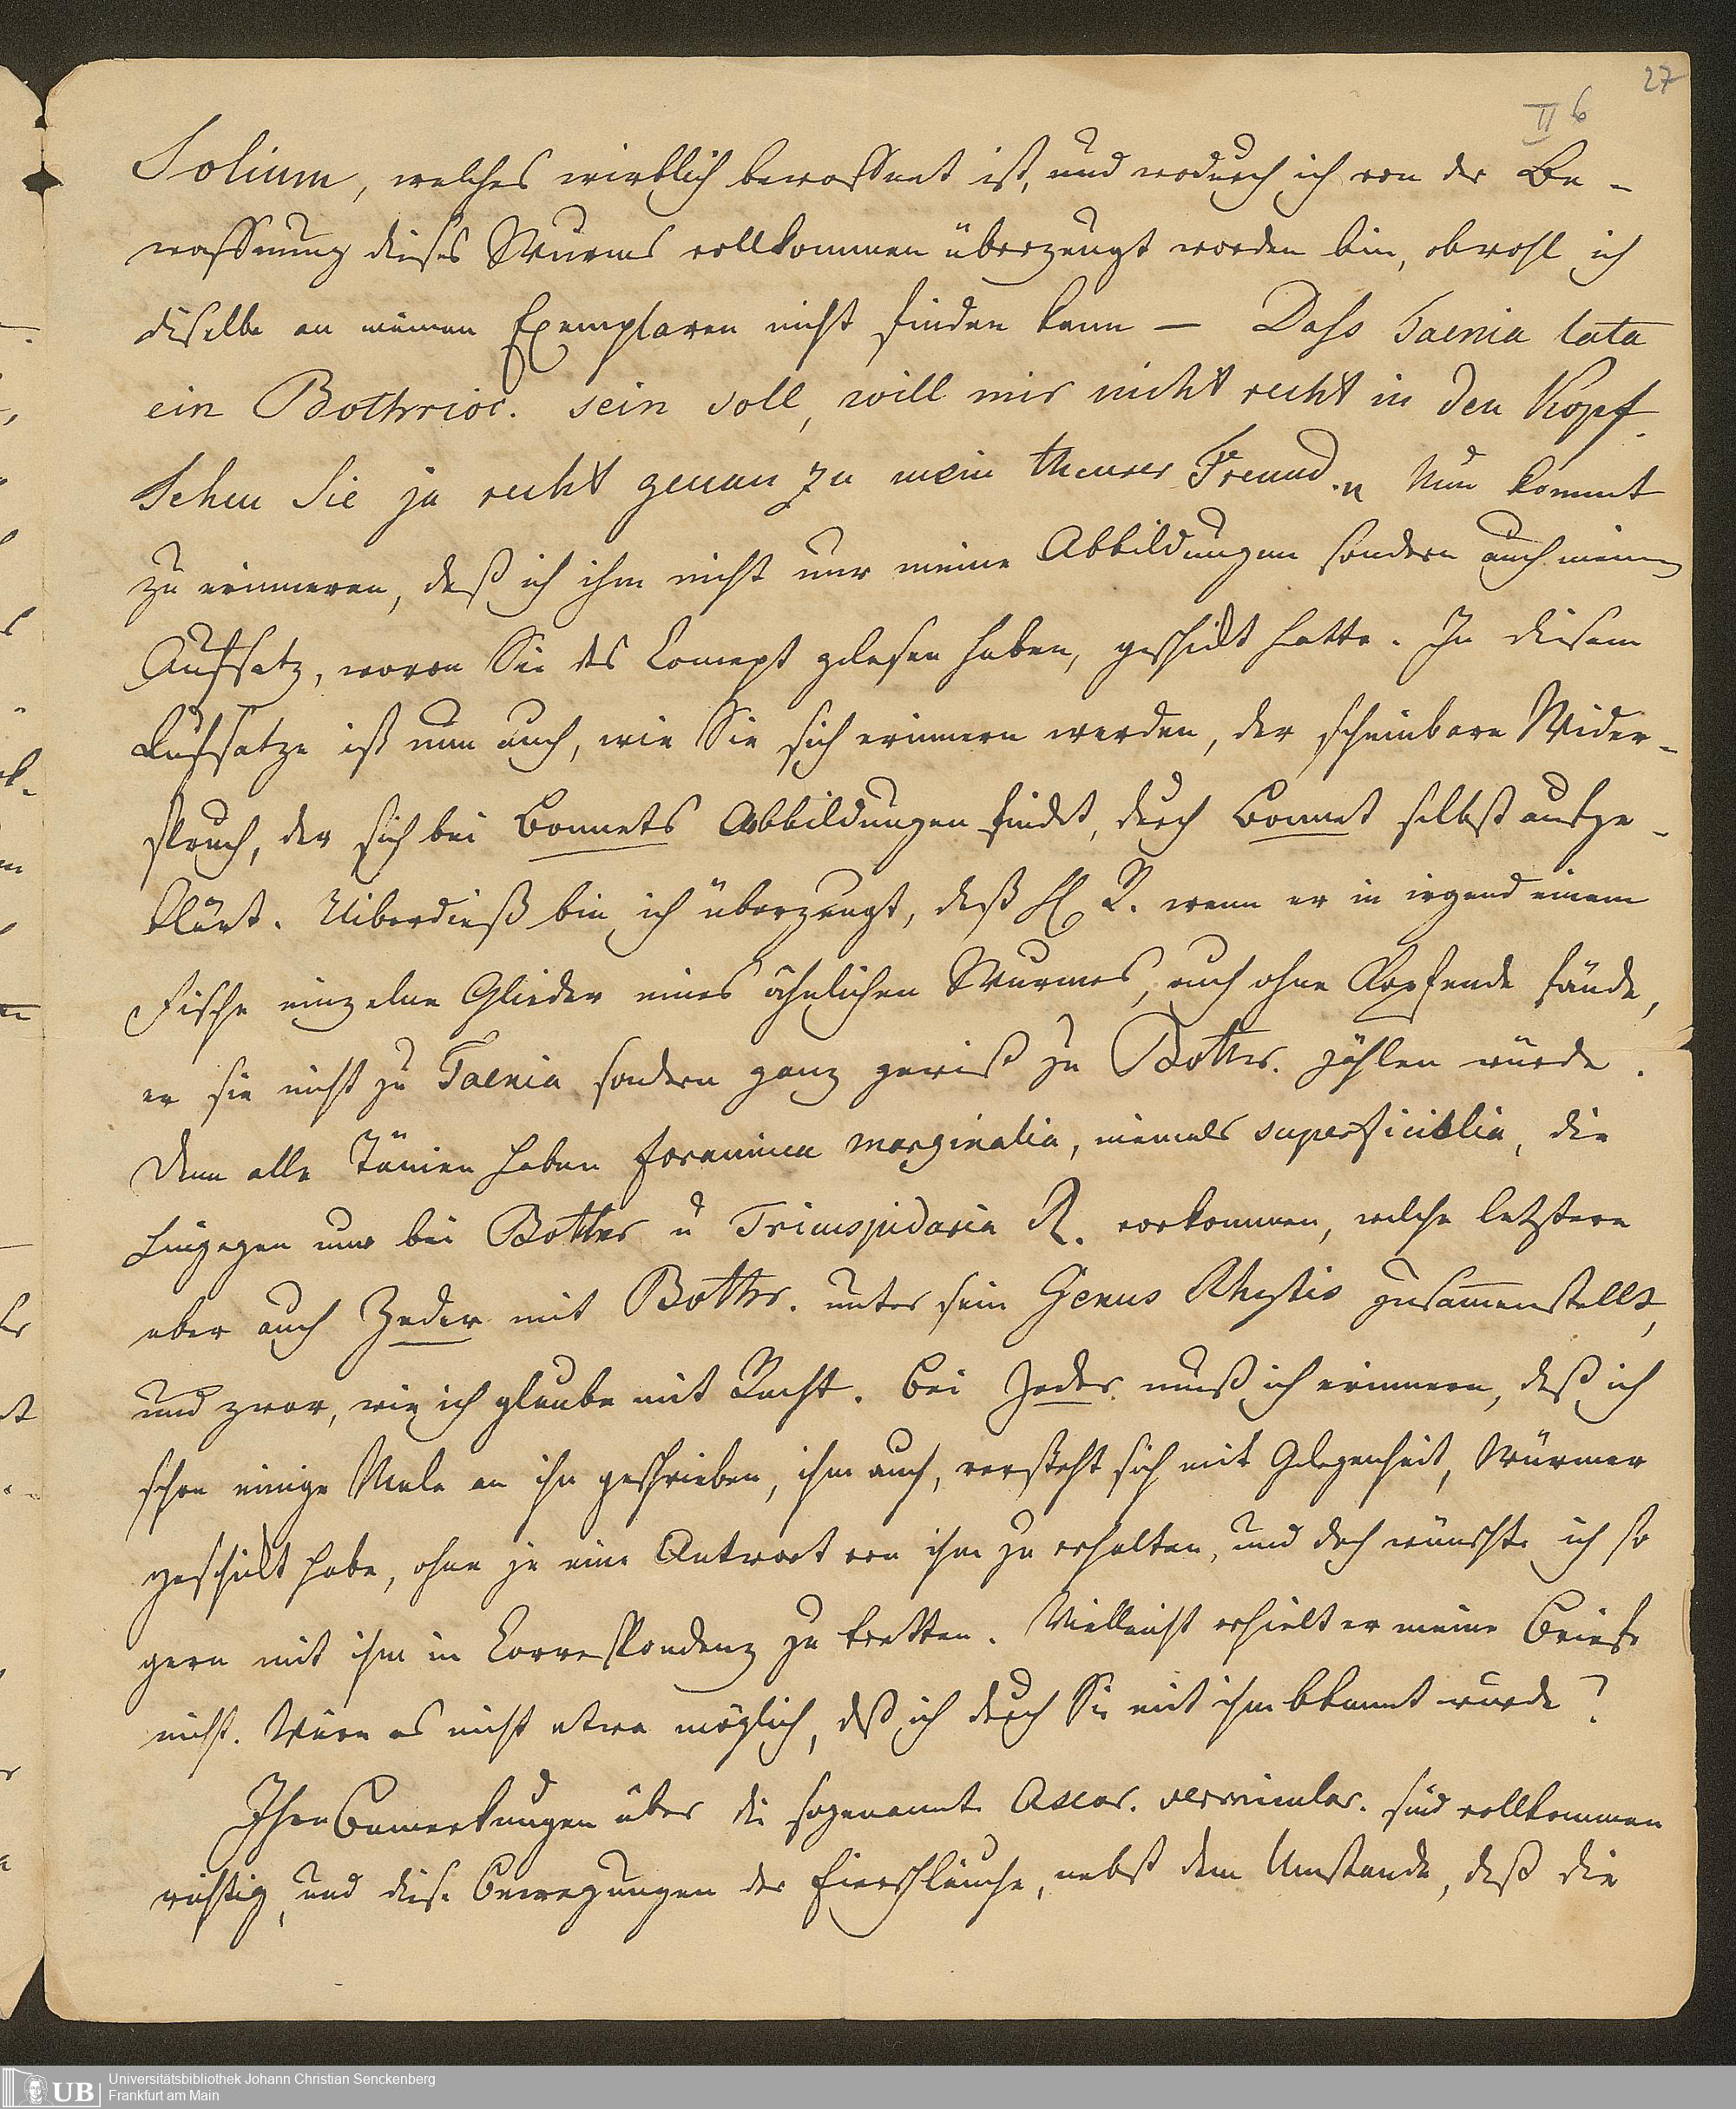 27
II 6
Solium, welches wirklich bewaffnet ist, und wodurch ich von der Be-
waffnung dieses Wurms vollkommen überzeugt worden bin, obwohl ich
diselbe an meinen Exemplaren nicht finden kann — Dass Taenia lata
ein Bothrioc. sein soll, will mir nicht recht in den Kopf.
Sehen Sie ja recht genau zu mein theurer Freund." Nun kommt
zu erinneren, daß ich ihm nicht nur meine Abbildungen sondern auch meinen
Aufsatz, wovon Sie das Concept gelesen haben, geschickt hatte. In diesem
Aufsatze ist nun auch, wie Sie sich erinnern werden, der scheinbare Wider-
spruch, der sich bei Bonnets Abbildungen findet, durch Bonnet selbst aufge-
klärt. Uiberdieß bin ich überzeugt, daß H. R. wenn er in irgend einem
Fische einzelne Glieder eines ähnlichen Wurmes, auch ohne Kopfende fände,
er sie nicht zu Taenia sondern ganz gewiß zu Bothr. zählen würde.
Denn alle Tänien haben foramina marginalia, niemals superficialia, die
hingegen nur bei Bothr u Tricuspidaria R. vorkommen, welche letztere
aber auch Zeder mit Bothr. unter sein Genus Rhytis zusammenstellt,
und zwar, wie ich glaube mit Recht. Bei Zeder muß ich erinnern, daß ich
schon einige Male an ihn geschrieben, ihm auch, versteht sich mit Gelegenheit, Würmer
geschickt habe, ohne je eine Antwort von ihm zu erhalten, und doch wünschte ich so
gern mit ihm in Correspondenz zu tretten. Vielleicht erhielt er meine Briefe
nicht. Wäre es nicht etwa möglich, daß ich durch Sie mit ihm bekannt wurde?
Ihre Bemerkungen über die sogenannte Ascar. vermicular. sind vollkommen
richtig, und diese Bewegungen der Eierschläuche, nebst dem Umstande, daß die
UB
Universitätsbibliothek Johann Christian Senckenberg
Frankfurt am Main